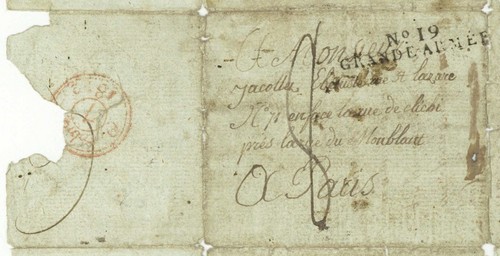 No 19
GRANDE ARMÉE
A Monsieur
Jacollez rue St lazare
No 71 en face la rue de clichi
près la rue du Monblant
A Paris
1812